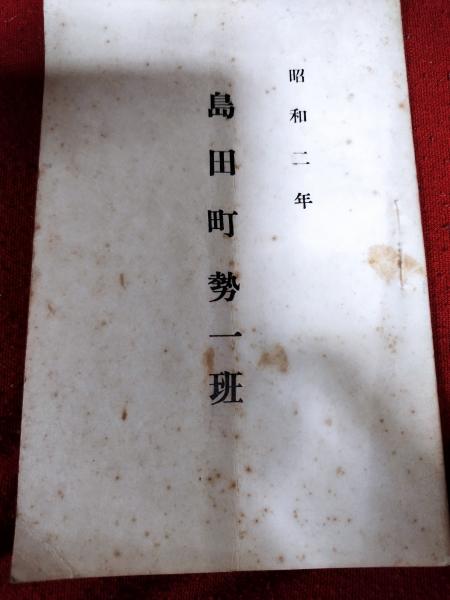 昭和二年
島田町勢一班